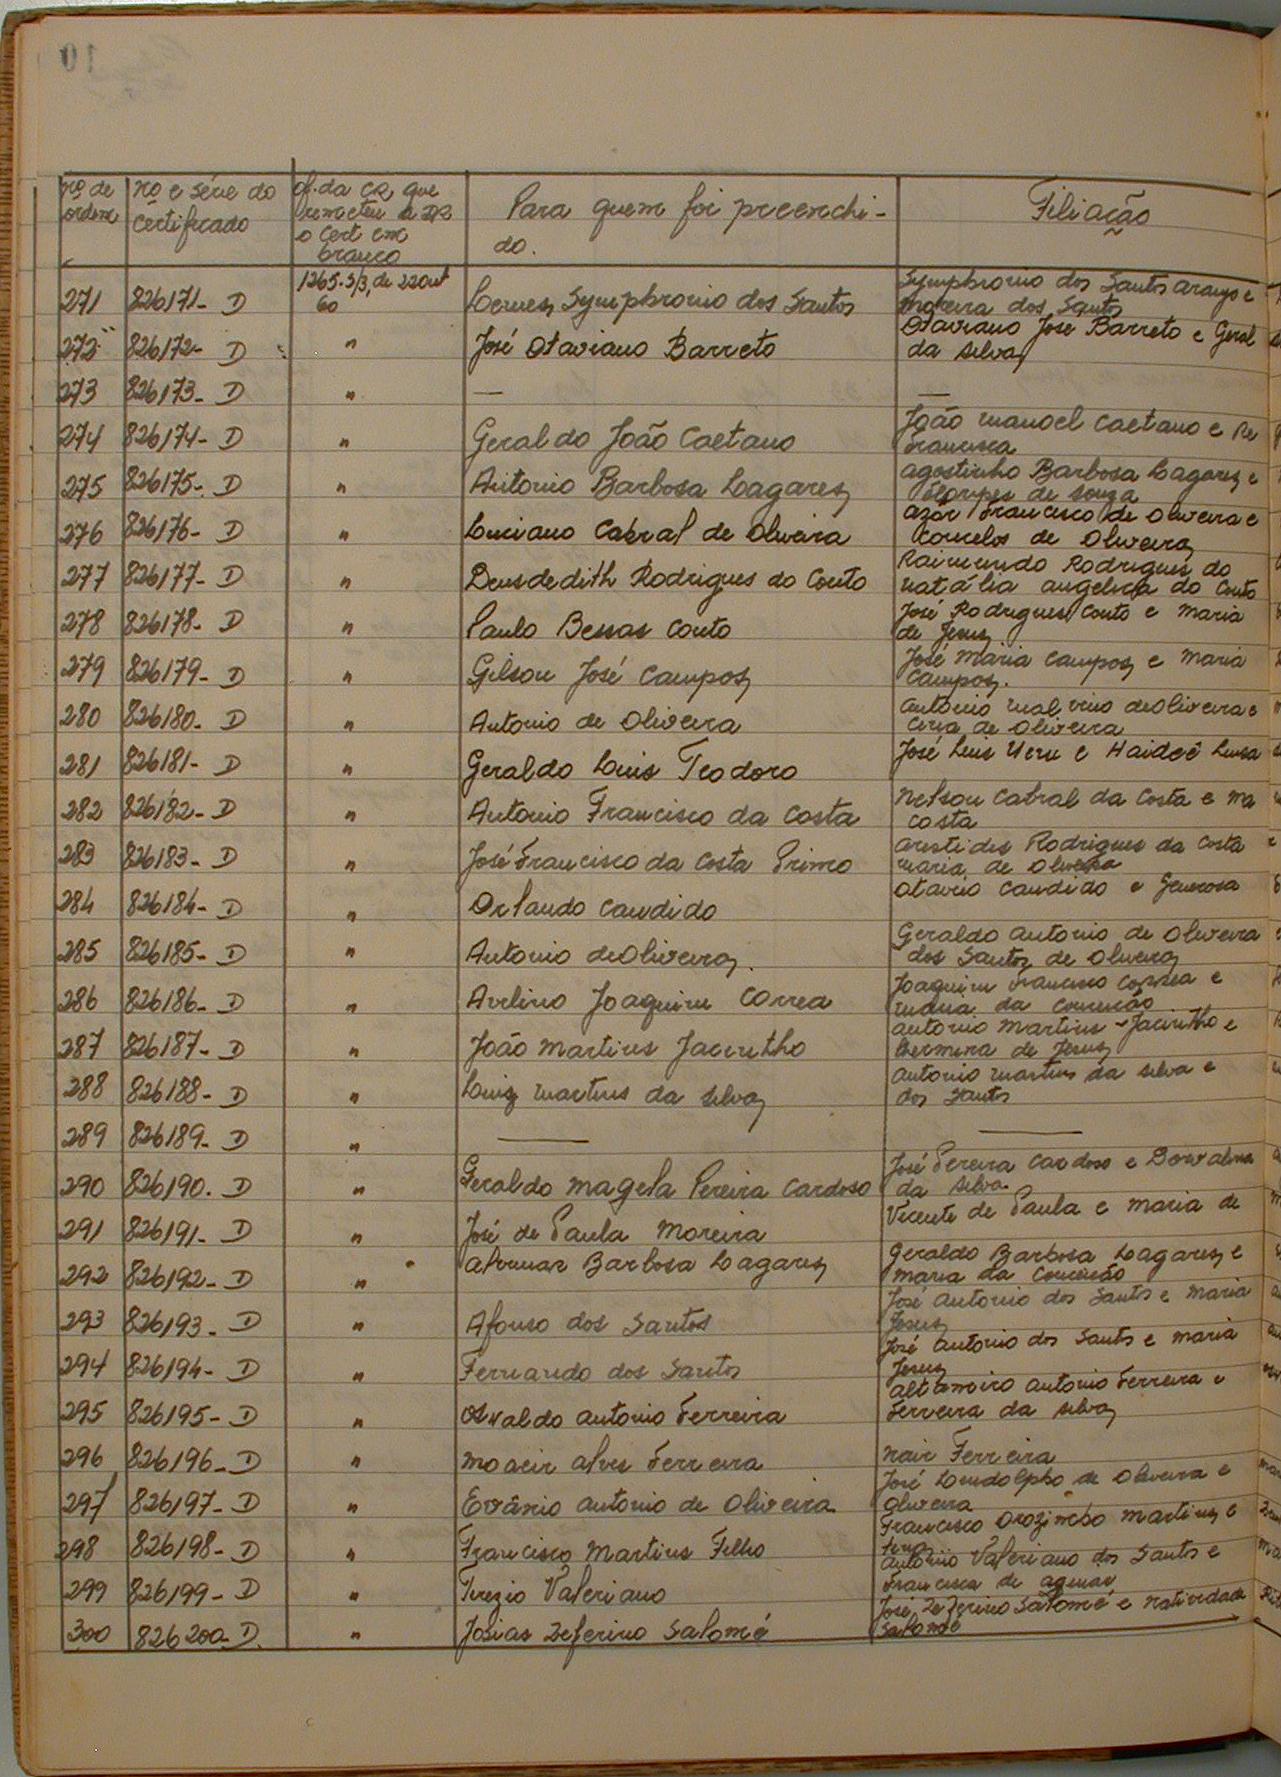 nº de ordem
nº e série do certificado
of. da CR que remeteu à DR o cert em branco
Para quem foi preenchido.
Filiação
271 826171- D 1265-S/3, de 22 out 60 Lemes Symphronio dos Santos Symphronio dos Santos Araujo e Moreira dos Santos
272 826172- D " José Otaviano Barreto Otaviano José Barreto e Geral da Silva
273 826173- D " —
274 826174- D " Geraldo João Caetano João Manoel Caetano e Re Francisca
275 826175- D " Antonio Barbosa Lagares Agostinho Barbosa Lagares e de Souza
276 826176- D " Luciano Cabral de Oliveira Francisco de Oliveira e de Oliveira
277 826177- D " Deusdedith Rodrigues do Couto Raimundo Rodrigues do Natália Angelica do Couto
278 826178- D " Paulo Bessas Couto José Rodrigues Couto e Maria de Jesus
279 826179- D " Gilson José Campos José Maria Campos e Maria Campos.
280 826180- D " Antonio de Oliveira Antonio de Oliveira e de Oliveira
281 826181- D " Geraldo Luis Teodoro José Luis e Haideê Luisa
282 826182- D " Antonio Francisco da Costa Nelson Cabral da Costa e Ma Costa
283 826183- D " José Francisco da Costa Primo Aristides Rodrigues da Costa Maria de Oliveira
284 826184- D " Orlando Candido Otavio Candido e Generosa
285 826185- D " Antonio de Oliveira. Geraldo Antonio de Oliveira dos Santos de Oliveira
286 826186- D " Avelino Joaquim Correa Joaquim Francisco Corrêa e Maria da Conceição
287 826187- D " João Martins Jacintho Antonio Martins Jacintho e de Jesus
288 826188- D " Luiz Martins da Silva Antonio Martins da Silva e dos Santos
289 826189- D " — —
290 826190. D " Geraldo Magela Pereira Cardoso José Pereira Cardoso e Dorvalina da Silva
291 826191- D " José de Paula Moreira Vicente de Paula e Maria de
292 826192- D " Barbosa Lagares Geraldo Barbosa Lagares e Maria da Conceição
293 826193- D " Afonso dos Santos José Antonio dos Santos e Maria Jesus
294 826194- D " Fernando dos Santos José Antonio dos Santos e Maria Jesus
295 826195- D " Osvaldo Antonio Ferreira Altamiro Antonio Ferreira e Ferreira da Silva
296 826196- D " Moacir Alves Ferreira Nair Ferreira
297 826197- D " Evânio Antonio de Oliveira José de Oliveira e Oliveira
298 826198- D " Francisco Martins Filho Francisco Orozimbo Martins e
299 826199- D " Valeriano Antonio Valeriano dos Santos e Francisca de Aguiar
300 826200- D. " Josias Zeferino Salomé José Zeferino Salomé e Natividade Salomé